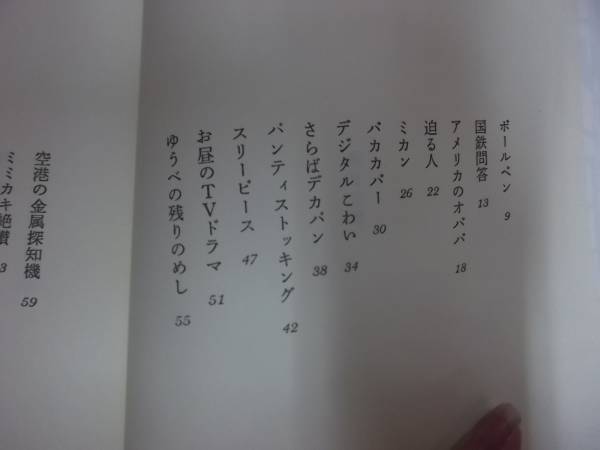 ボールペン 9
国鉄問答 13
アメリカのオババ 18
迫る人 22
ミカン 26
バカカバー 30
デジタルこわい 34
さらばデカパン 38
パンティストッキング 42
スリーピース 47
お昼のTVドラマ 51
ゆうべの残りのめし 55
空港の金属探知機 59
ミミカキ絶賛